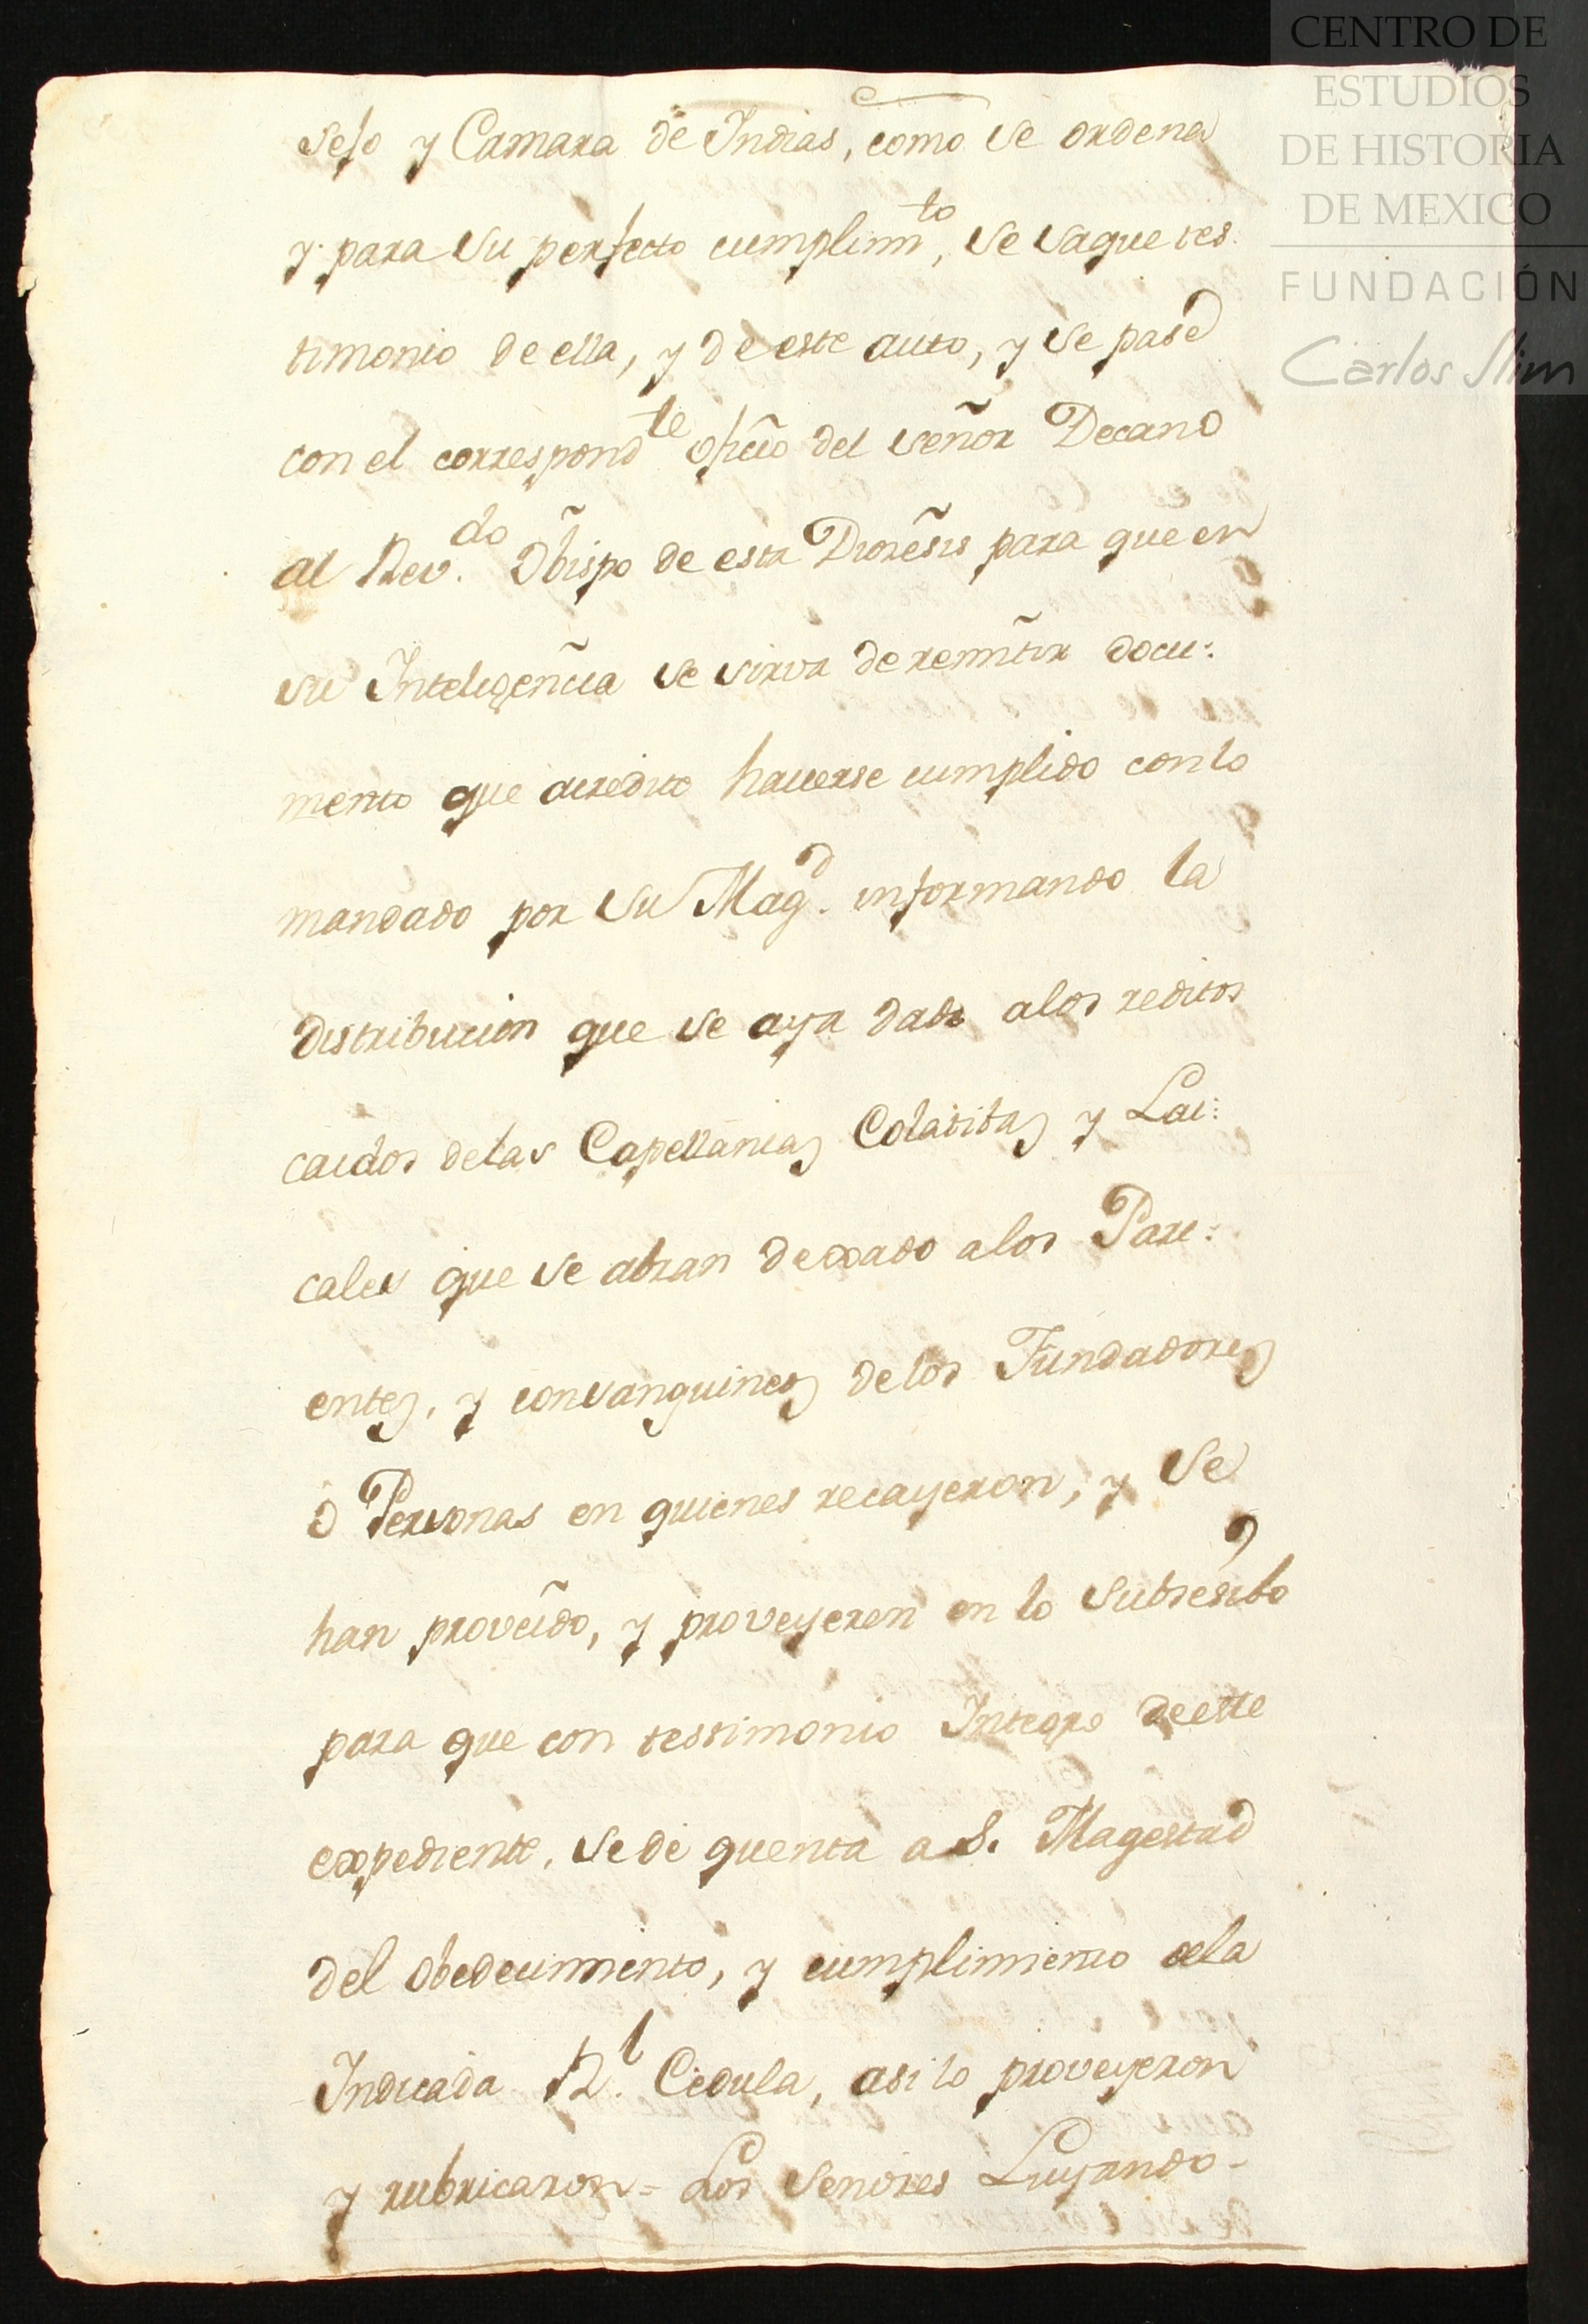 CENTRO DE
ESTUDIOS
DE HISTORIA
DE MEXICO
FUNDACIÓN
Carlos Slim
sejo y Camara de Indias, como se ordena
y para su perfecto cumplim.to, se saque tes-
timonio de ella, y de este auto, y se pase
con el correspond.te oficio del señor Decano
al Rev.do Obispo de esta Diocesis para que en
su Inteligencia se sirva de remitir docu:
mento que acredite haverse cumplido con lo
mandado por su Mag.d informando la
distribucion que se aya dado a los reditos
caidos de las Capellanias Colatibas y Lai:
cales que se abran dexado a los Pari:
entes, y consanguineos de los Fundadores
o Personas en quienes recayeron, y se
han proveido, y proveyeren en lo subcesibo
para que con testimonio Integro de este
expediente, se dé quenta a S. Magestad
del obedecimiento, y cumplimiento de la
Indicada R.l Cedula, asi lo proveyeron
y rubricaron = Los Señores Luyando-